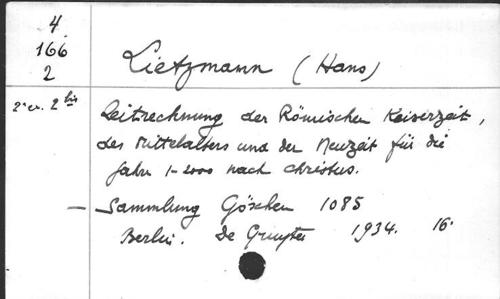 4.
166
2
Lietzmann (Hans)
2e ex. 2 bis
Zeitrechnung der Römischen Kaiserzeit,
des Mittelalters und der Neuzeit für die
Jahre 1-2000 nach Christus.
— Sammlung Göschen 1085
Berlin. De Gruyter 1934. 16°